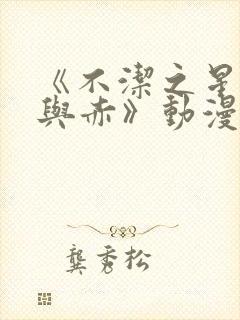 《不潔之星
與赤》動漫
龔秀松